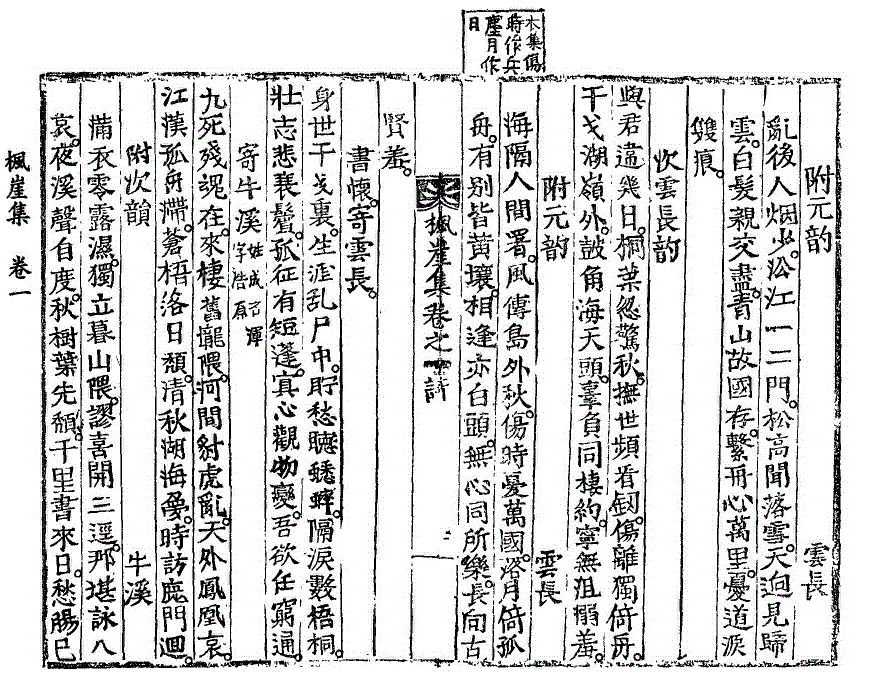 木集傷
時作兵
塵月作
日
附元韵 雲長
亂後人烟少。淞江一二門。松高聞落雪。天迥見歸
雲。白髮親交盡。靑山故國存。繫舟心萬里。憂道淚
雙痕。
次雲長韵
與君違幾日。桐葉忽驚秋。撫世頻看釼。傷離獨倚舟。
干戈湖嶺外。鼓角海天頭。辜負同棲約。寧無沮溺羞。
附元韵 雲長
海隔人間署。風傳島外秋。傷時憂萬國。落月倚孤
舟。有別皆黃壤。相逢亦白頭。無心同所樂。長向古
楓崖集卷之一 詩 二
賢羞。
書懷。寄雲長。
身世干戈裏。生涯乱尸中。貯愁聽蟋蟀。隔淚數梧桐。
壯志悲衰鬢。孤征有短蓬。寘心觀物變。吾欲任窮通。
寄牛溪 姓成名渾 字浩原
九死殘魂在。來棲舊隴隈。河間豺虎亂。天外鳳凰哀。
江漢孤舟滯。蒼梧落日頹。淸秋湖海夢。時訪鹿門迴。
附次韻 牛溪
滿衣零露濕。獨立暮山隈。謬喜開三逕。那堪詠八
哀。夜溪聲自度。秋樹葉先頹。千里書來日。愁腸已
楓崖集 卷一